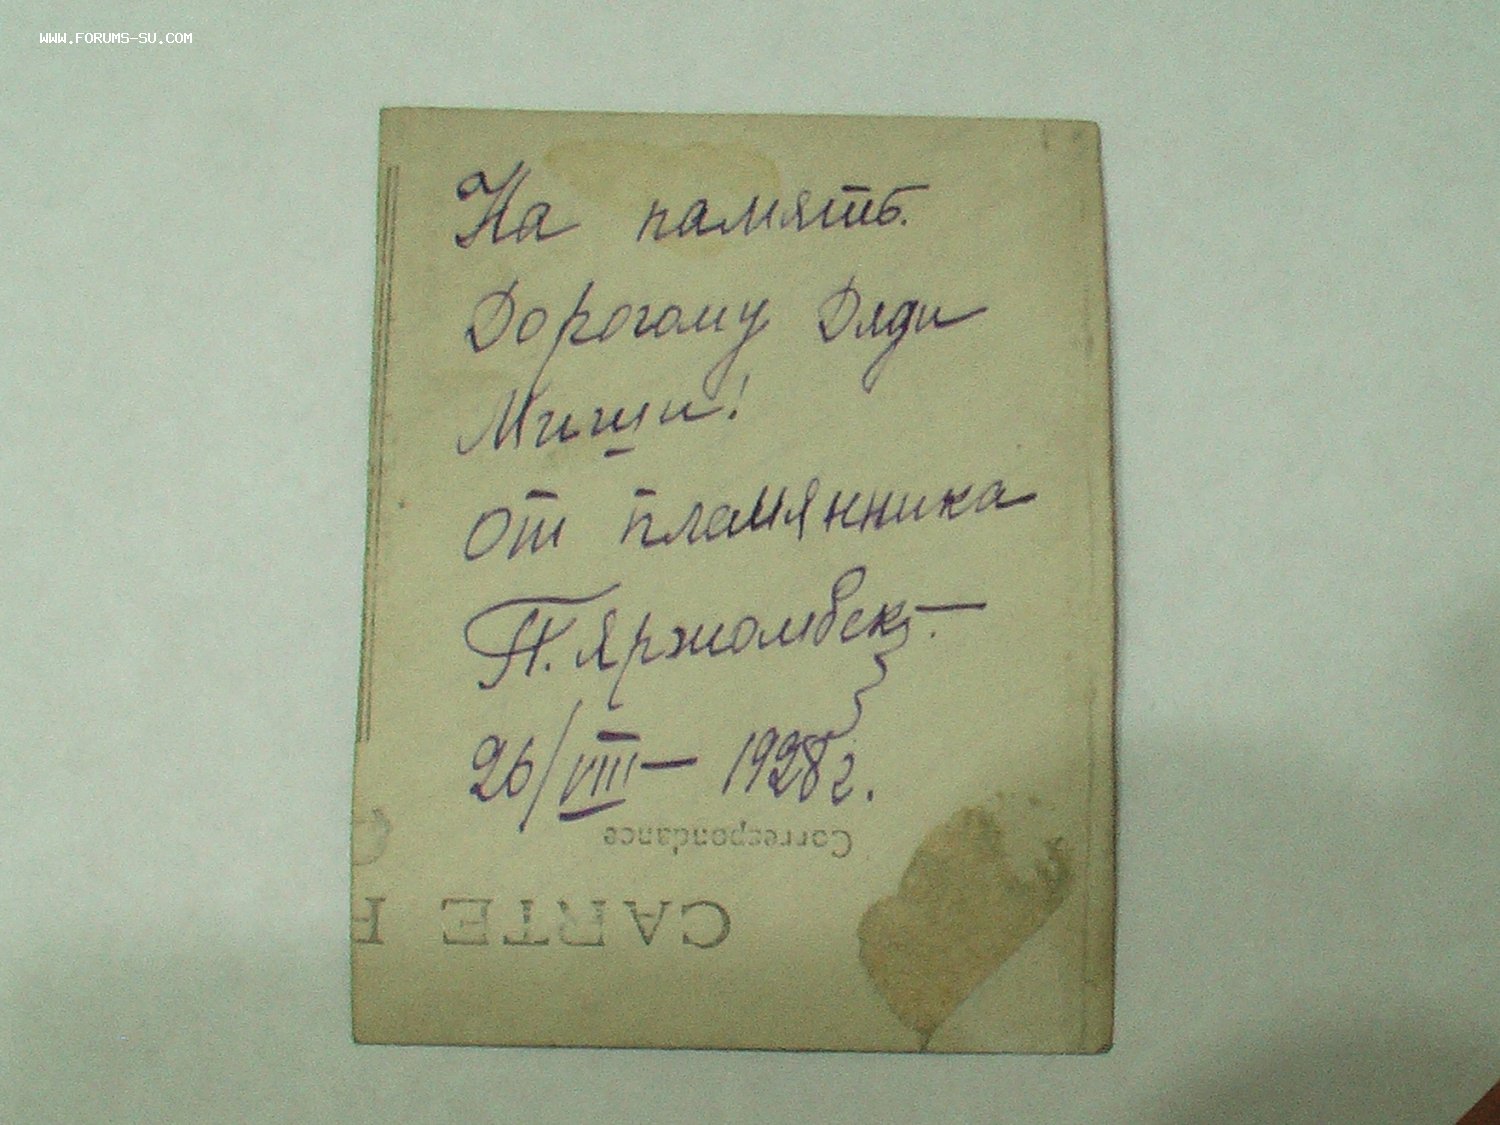 WWW.FORUMS-SU.COM
На память.
Дорогому Дяди
Миши!
От пламянника
П. Яржомбек.—
26/VIII — 1928 г.
Correspondance
CARTE P